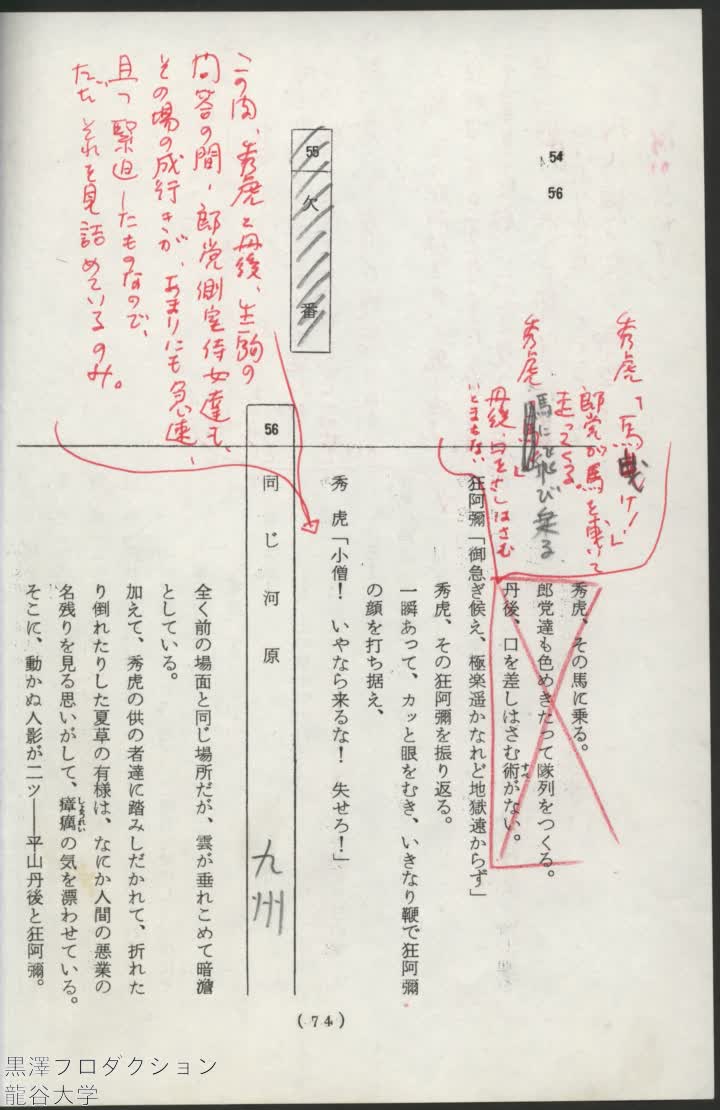 54
56
秀虎「馬曳け!」
郎党が馬を曳いて
走ってくる。
秀虎
馬に飛び乗る
丹後、口をさしはさむ
いとまもない
秀虎、その馬に乗る。
郎党達も色めきたって隊列をつくる。
丹後、口を差しはさむ術がない。
すべ
狂阿彌「御急ぎ候え、極楽遥かなれど地獄遠からず」
秀虎、その狂阿彌を振り返る。
一瞬あって、カッと眼をむき、いきなり鞭で狂阿彌
の顔を打ち据え、
秀 虎「小僧! いやなら来るな! 失せろ!」
55 欠番
この間、秀虎と丹後、生駒の
問答の間、郎党側室侍女達も、
その場の成行きが、あまりにも急速、
且つ緊迫したものなので、
たゞ、それを見詰めているのみ。
56 同じ河原
九州
全く前の場面と同じ場所だが、雲が垂れこめて暗澹
としている。
加えて、秀虎の供の者達に踏みしだかれて、折れた
り倒れたりした夏草の有様は、なにか人間の悪業の
名残りを見る思いがして、瘴癘の気を漂わせている。
しょうれい
そこに、動かぬ人影が二ツ――平山丹後と狂阿彌。
(74)
黒澤フロダクション
龍谷大学